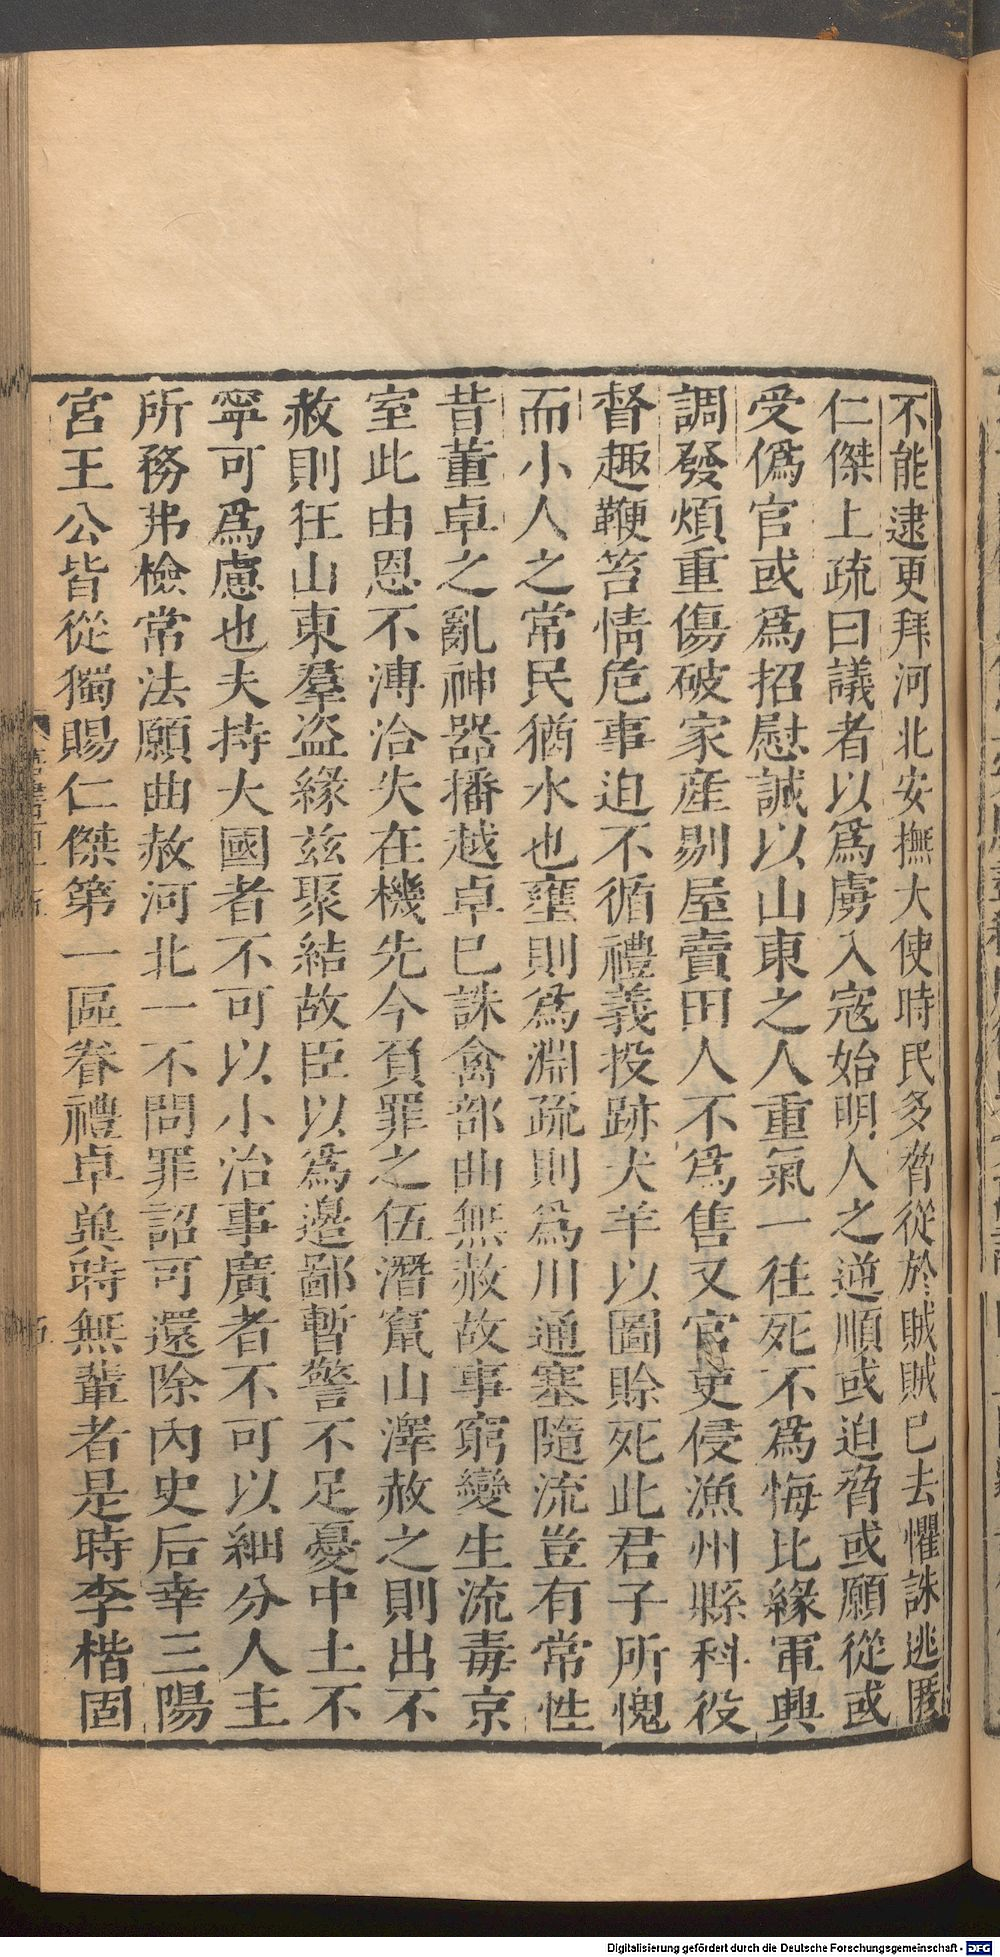 不能逮更拜河北安撫大使時民多脅從於賊賊已去懼誅逃匿
仁傑上疏曰議者以為虜入寇始明人之逆順或迫脅或願從或
受偽官或為招慰誠以山東之人重氣一往死不為悔比緣軍興
調發煩重傷破家產剔屋賣田人不為售又官吏侵漁州縣科役
督趣鞭笞情危事迫不循禮義投跡犬羊以圖賒死此君子所愧
而小人之常民猶水也壅則為淵疏則為川通塞隨流豈有常性
昔董卓之亂神器播越卓已誅禽部曲無赦故事窮變生流毒京
室此由恩不溥洽失在機先今負罪之伍潛竄山澤赦之則出不
赦則狂山東羣盜緣茲聚結故臣以為邊鄙暫警不足憂中土不
寧可為慮也夫持大國者不可以小治事廣者不可以細分人主
所務弗檢常法願曲赦河北一不問罪詔可還除內史后幸三陽
宮王公皆從獨賜仁傑第一區眷禮卓異時無輩者是時李楷固
Digitalisierung gefördert durch die Deutsche Forschungsgemeinschaft - DFG